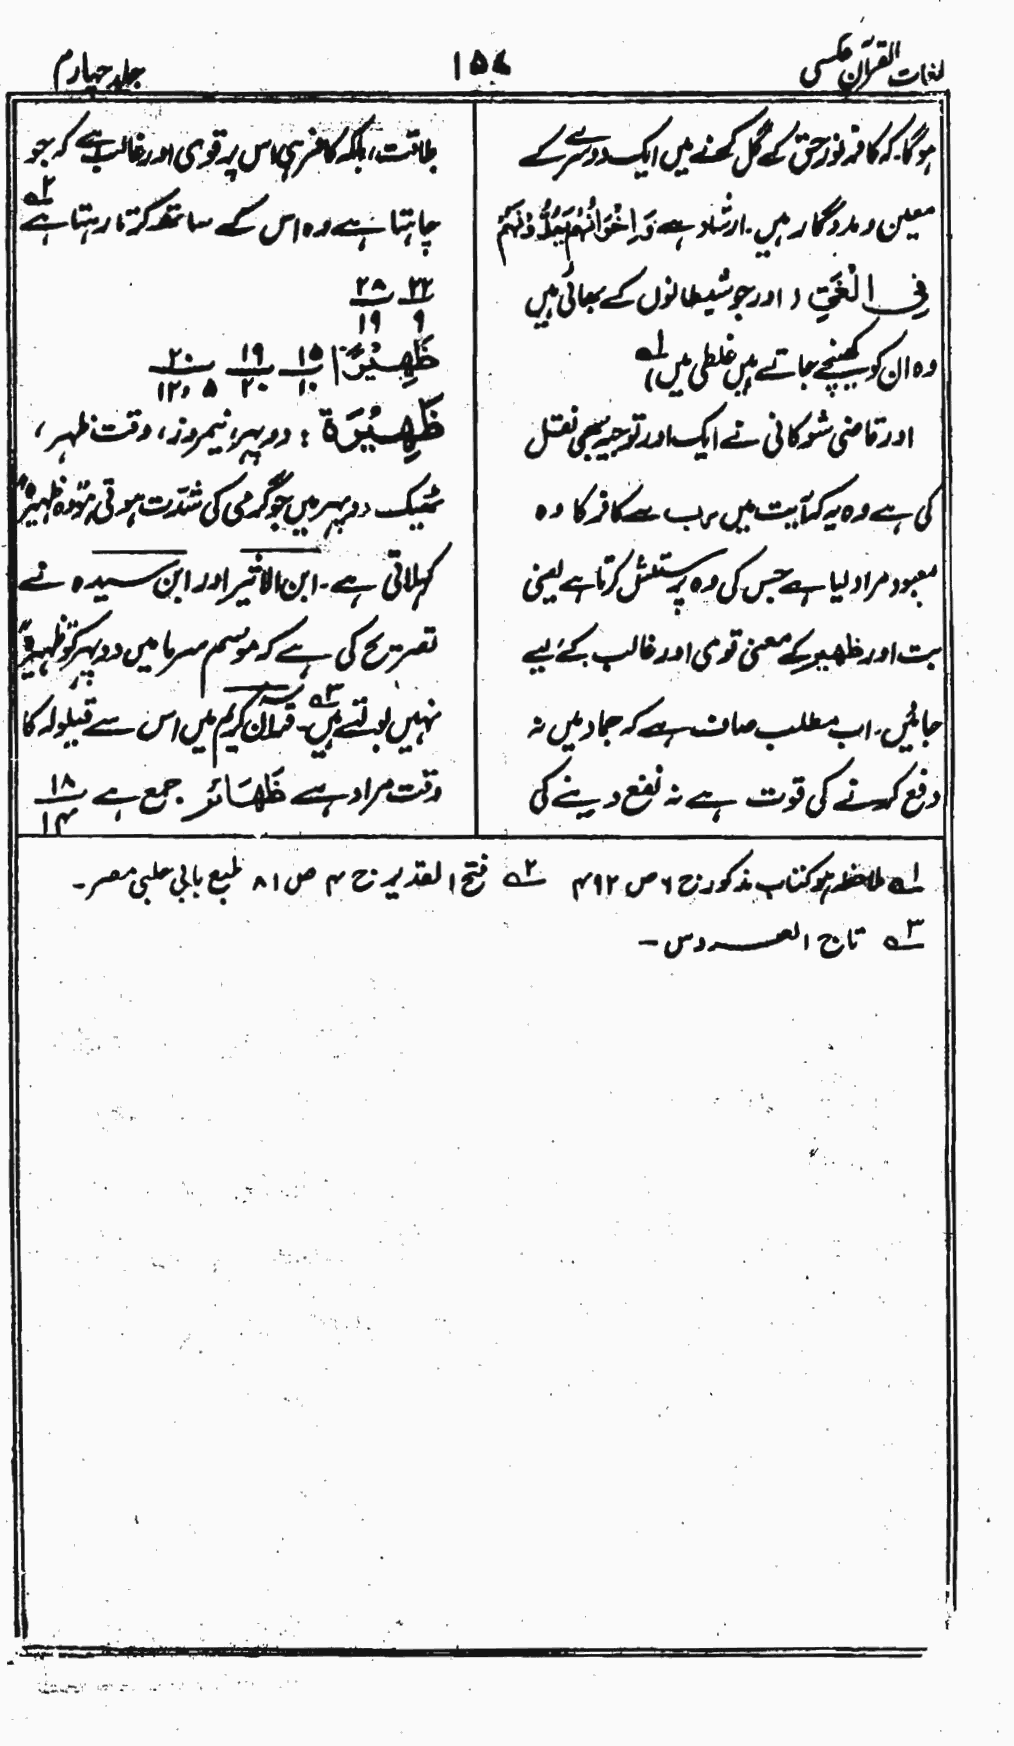 لغات القرآن عکسی
۱۵۷
جلد چہارم
ہوگا۔ کہ کافر نورِ حق کے گل کھنے میں ایک دوسرے کے
معین و مددگار ہیں۔ ارشاد ہے وَاِخْوَانُهُمْ يَمُدُّوْنَهُمْ
فِی الْغَيِّ ( اور جو شیطانوں کے بھائی ہیں
وہ ان کو کھینچے جاتے ہیں غلطی میں) ۱ھ
اور قاضی شوکانی نے ایک اور توجیہ بھی نقل
کی ہے وہ یہ کہ آیت میں رب سے کافر کا وہ
معبود مراد لیا ہے جس کی وہ پرستش کرتا ہے یعنی
بت اور ظہیر کے معنی قوی اور غالب کے لیے
جائیں۔ اب مطلب صاف ہے کہ جماد میں نہ
دفع کرنے کی قوت ہے نہ نفع دینے کی
طاقت، بلکہ کافر ہی اس پر قوی اور غالب ہے کہ جو
چاہتا ہے وہ اس کے ساتھ کرتا رہتا ہے ۲ھ
۲۲ ۲۸
۹ ۱۹
ظَهِيْرًا ۱۵ ۱۹ ۲۰
۱۰ ۲۰ ۵ و ۱۲
ظَهِيْرَة : دوپہر، نیمروز، وقت ظہر،
ٹھیک دوپہر میں جو گرمی کی شدّت ہوتی ہے وہ ظہیرہ
کہلاتی ہے۔ ابن الاثیر اور ابن سیدہ نے
تصریح کی ہے کہ موسم سرما میں دوپہر کو ظہیرہ
نہیں بولتے ہیں۔ ۳ھ قرآن کریم میں اس سے قیلولہ کا
وقت مراد ہے ظَهَائر جمع ہے ۱۸
۱۴
۱ھ ملاحظہ ہو کتاب مذکور ج ۶ ص ۴۹۲ ۲ھ فتح القدیر ج ۴ ص ۸۱ طبع بابی حلبی مصر۔
۳ھ تاج العروس ۔